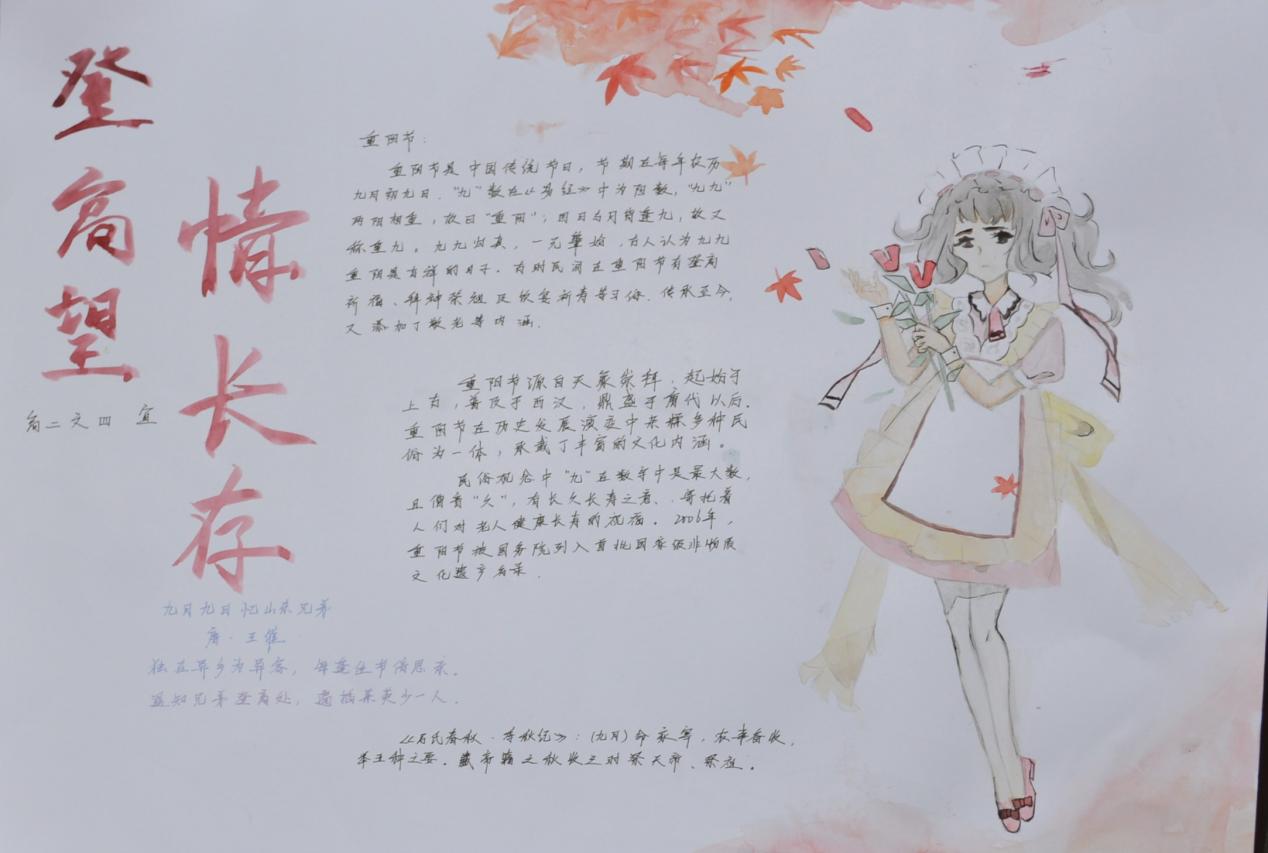 登高望
情长存
高二文四 宣
重阳节:
重阳节是中国传统节日,节期在每年农历
九月初九日。"九"数在《易经》中为阳数,"九九"
两阳相重,故曰"重阳";因日与月皆逢九,故又
称重九。九九归真,一元肇始,古人认为九九
重阳是吉祥的日子。古时民间在重阳节有登高
祈福、拜神祭祖及饮宴祈寿等习俗。传承至今,
又添加了敬老等内涵。
重阳节源自天象崇拜,起始于
上古,普及于西汉,鼎盛于唐代以后。
重阳节在历史发展演变中杂糅多种民
俗为一体,承载了丰富的文化内涵。
民俗观念中"九"在数字中是最大数,
且偕音"久",有长久长寿之意、寄托着
人们对老人健康长寿的祝福。2006年,
重阳节被国务院列入首批国家级非物质
文化遗产名录.
九月九日忆山东兄弟
唐·王维
独在异乡为异客,每逢佳节倍思亲。
遥知兄弟登高处,遍插茱萸少一人.
《吕氏春秋·季秋纪》:(九月)命家宰,农事备收,
举五种之要。藏帝籍之收於之时祭天帝、祭祖。